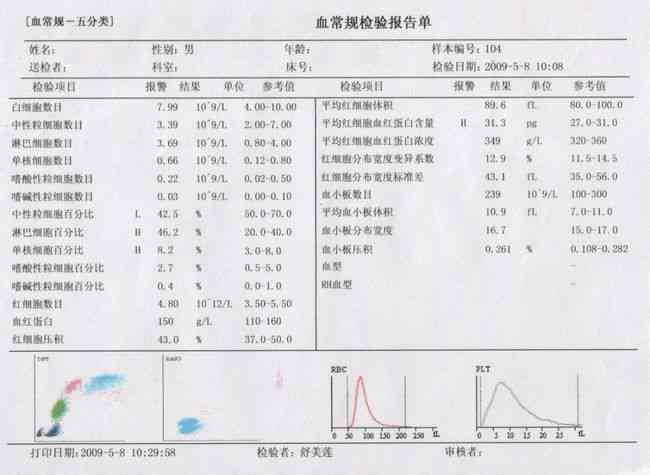 [血常规－五分类]
血常规检验报告单
姓名：	性别：男	年龄：	样本编号：104
送检者：	科室：	床号：	检验日期：2009-5-8 10:08
检验项目	报警	结果	单位	参考值	检验项目	报警	结果	单位	参考值
白细胞数目	7.99	10^9/L	4.00-10.00	平均红细胞体积	89.6	fL	80.0-100.0
中性粒细胞数目	3.39	10^9/L	2.00-7.00	平均红细胞血红蛋白含量	H	31.3	pg	27.0-31.0
淋巴细胞数目	3.69	10^9/L	0.80-4.00	平均红细胞血红蛋白浓度	349	g/L	320-360
单核细胞数目	0.66	10^9/L	0.12-0.80	红细胞分布宽度变异系数	12.9	%	11.5-14.5
嗜酸性粒细胞数目	0.22	10^9/L	0.02-0.50	红细胞分布宽度标准差	43.1	fL	35.0-56.0
嗜碱性粒细胞数目	0.03	10^9/L	0.00-0.10	血小板数目	239	10^9/L	100-300
中性粒细胞百分比	L	42.5	%	50.0-70.0	平均血小板体积	10.9	fL	7.0-11.0
淋巴细胞百分比	H	46.2	%	20.0-40.0	血小板分布宽度	16.7	15.0-17.0
单核细胞百分比	H	8.2	%	3.0-8.0	血小板压积	0.261	%	0.108-0.282
嗜酸性粒细胞百分比	2.7	%	0.5-5.0	血型	-
嗜碱性粒细胞百分比	0.4	%	0.0-1.0	RH血型	-
红细胞数目	4.80	10^12/L	3.50-5.50
血红蛋白	150	g/L	110-160
红细胞压积	43.0	%	37.0-50.0
DIFF	BASO	RBC	PLT
0 50 100 150 200 250 fL	0 5 10 15 20 25 30 fL
打印日期：2009-5-8 10:29:58	检验者：舒美莲	审核者：